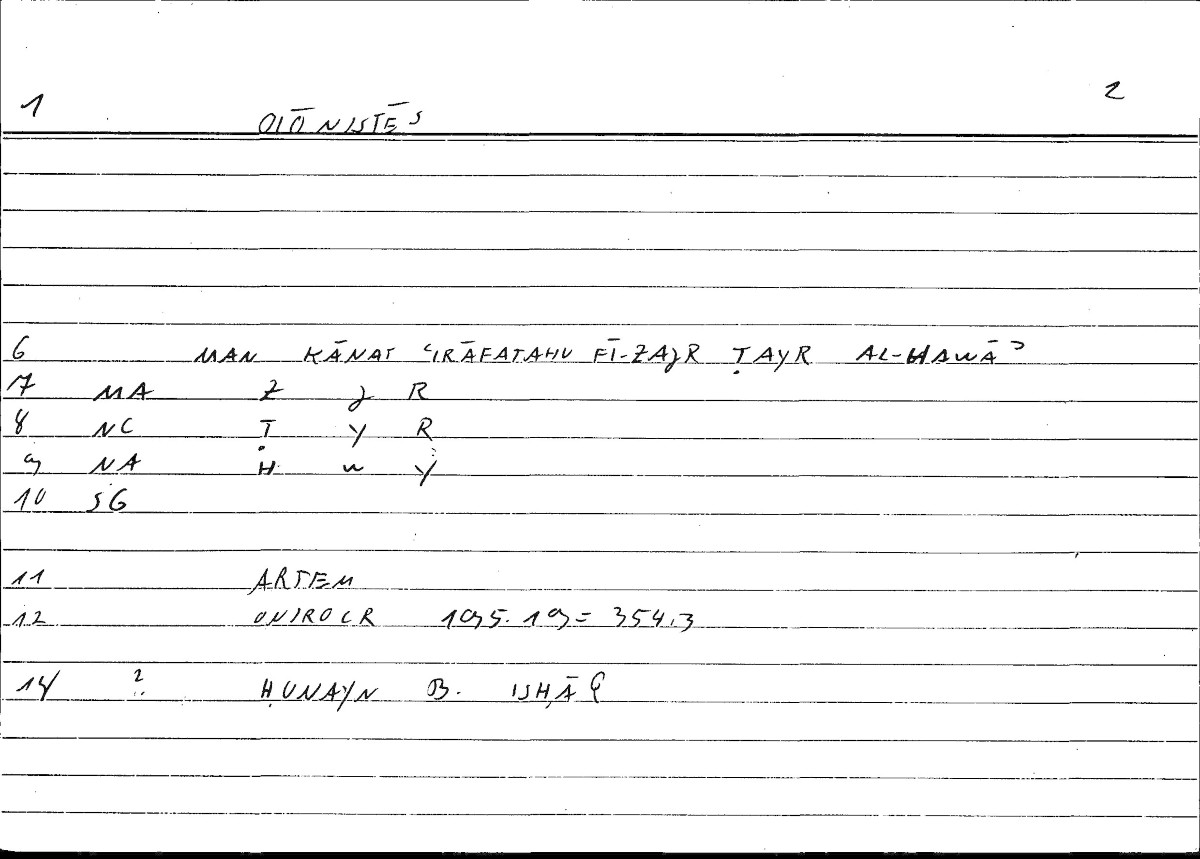 1 OIŌNISTĒS 2
6 MAN KĀNAT ʿIRĀFATAHU FĪ-ZAJR ṬAYR AL-HAWĀʾ
7 MA Z J R
8 NC Ṭ Y R
9 NA H W Y
10 SG
11 ARTEM
12 ONIROCR 195.19=354.3
14 2 ḤUNAYN B. ISḤĀQ